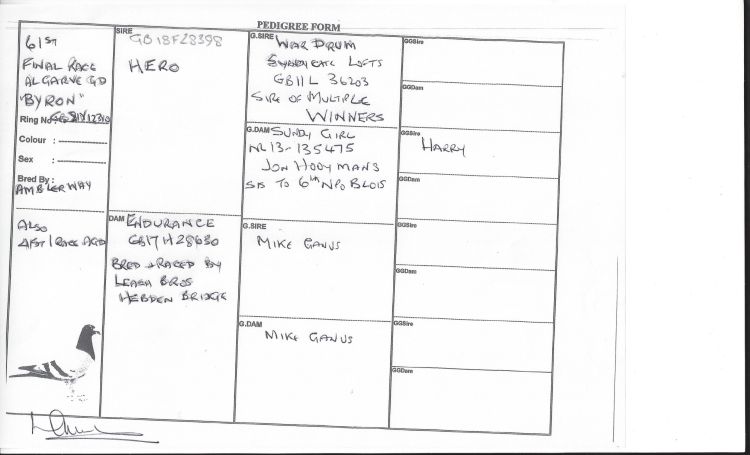 PEDIGREE FORM
61ST
FINAL RACE
ALGARVE GD
"BYRON"
Ring No
Colour :
Sex :
Bred By :
AMBLERWAY
ALSO
41ST 1 RACE AGD
SIRE
GB18F28398
HERO
DAM ENDURANCE
GB17H28630
BRED & RACED BY
LEACH BROS
HEBDEN BRIDGE
G.SIRE WAR DRUM
LOFTS
GB11L 36203
SIRE OF MULTIPLE
WINNERS
G.DAM SUNDY GIRL
NL13-135475
JON HOOYMANS
SIS TO 6TH NPO BLOIS
G.SIRE
MIKE GANUS
G.DAM
MIKE GANUS
GGSire
GGDam
GGSire
HARRY
GGDam
GGSire
GGDam
GGSire
GGDam